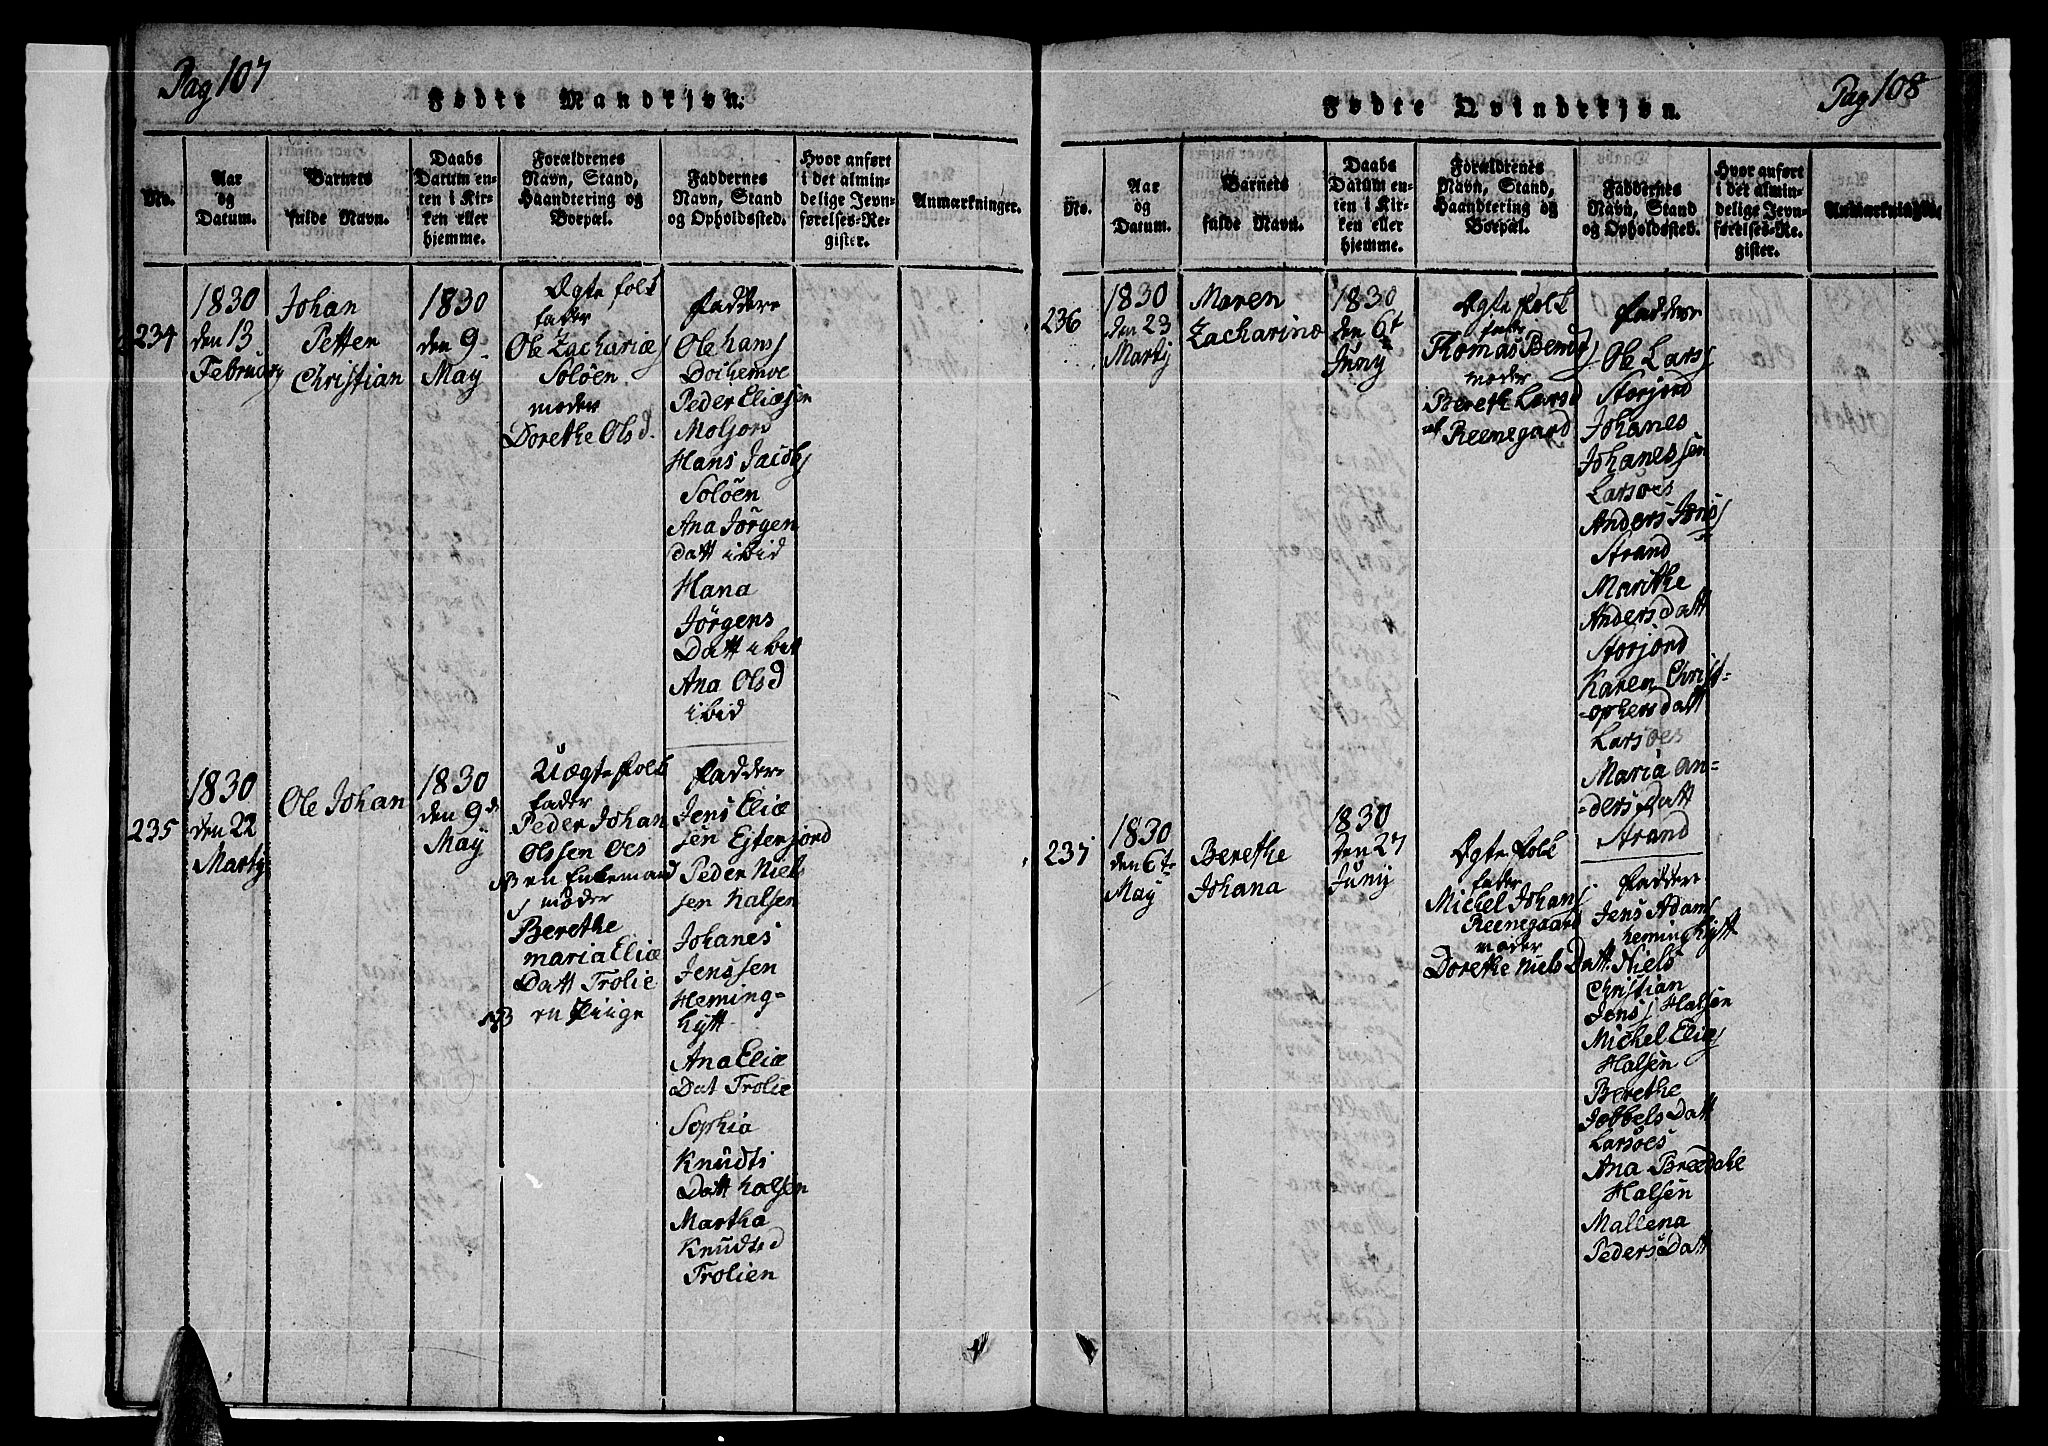 Pag 107
Fødte Mandkjøn.
No.
Aar
og
Datum.
Barnets
fulde Navn.
Daabs
Datum en-
ten i Kir-
ken eller
hjemme.
Forældrenes
Navn, Stand,
Haandtering og
Boepæl.
Faddernes
Navn, Stand
og Opholdssted.
Hvor anført
i det almin-
delige Jevn-
førelses-Re-
gister.
Anmærkninger.
234
1830
den 13
Februarij
Johan
Petter
Christian
1830
den 9
May
Ægte folk
fader
Ole Zachariæs
Soløen
moder
Dorethe Olsd.
Faddere
Ole Hans
Doihemoe
Peder Eliæsen
Moljord
Hans Jacobs
Soløen
Ana Jørgen
datt ibid
Hana
Jørgens
Datt ibit
Ana Olsd
ibid
235
1830
den 22
Martij
Ole Johan
1830
den 9d
May
Uægte folk
fader
Peder Johan
Olssen Oes
NB en Enkemand
moder
Berethe
maria Eliæ
Datt Trolie
NB en Piige
Fadder
Jens Eliæ
sen Ejterjord
Peder Niel
sen Halsen
Johanes
Jenssen
Heming-
hytt
Ana Eliæ
Dat Trolie
Sophia
Knudts
Datt Halsen
Martha
Knudtsd
Trolien
Pag 108
Fødte Qvindekjøn.
No.
Aar
og
Datum.
Barnets
fulde Navn.
Daabs
Datum en-
ten i Kir-
ken eller
hjemme.
Forældrenes
Navn, Stand,
Haandtering og
Boepæl.
Faddernes
Navn, Stand
og Opholdssted.
Hvor anført
i det almin-
delige Jevn-
førelses-Re-
gister.
Anmærkninger.
236
1830
den 23
Martij
Maren
Zacharina
1830
den 6t
Juny
Ægte Folk
fader
Thomas Bend
moder
Bereth Larsd
Reenegard
Fadder
Ole Lars
Storjord
Johanes
Johanessen
Larsoes
Anders Jons
Strand
Marithe
Andersdatt
Storjord
Karen Christ-
-ophersdatt
Larsoes
Maria An-
-dersdatt
Strand
237
1830
den 6t
May
Berethe
Johana
1830
Den 27
Junij
Ægte Folk
fader
Michel Johans
Reenegaard
moder
Dorethe Niels Datt.
Faddere
Jens Adams
heminghytt
Niels
Christian
Jens Halsen
Michel Elias
Halsen
Berethe
Jobbels Datt
Larsoes
Ana Bredahe
Halsen
Mallena
Peders Datt